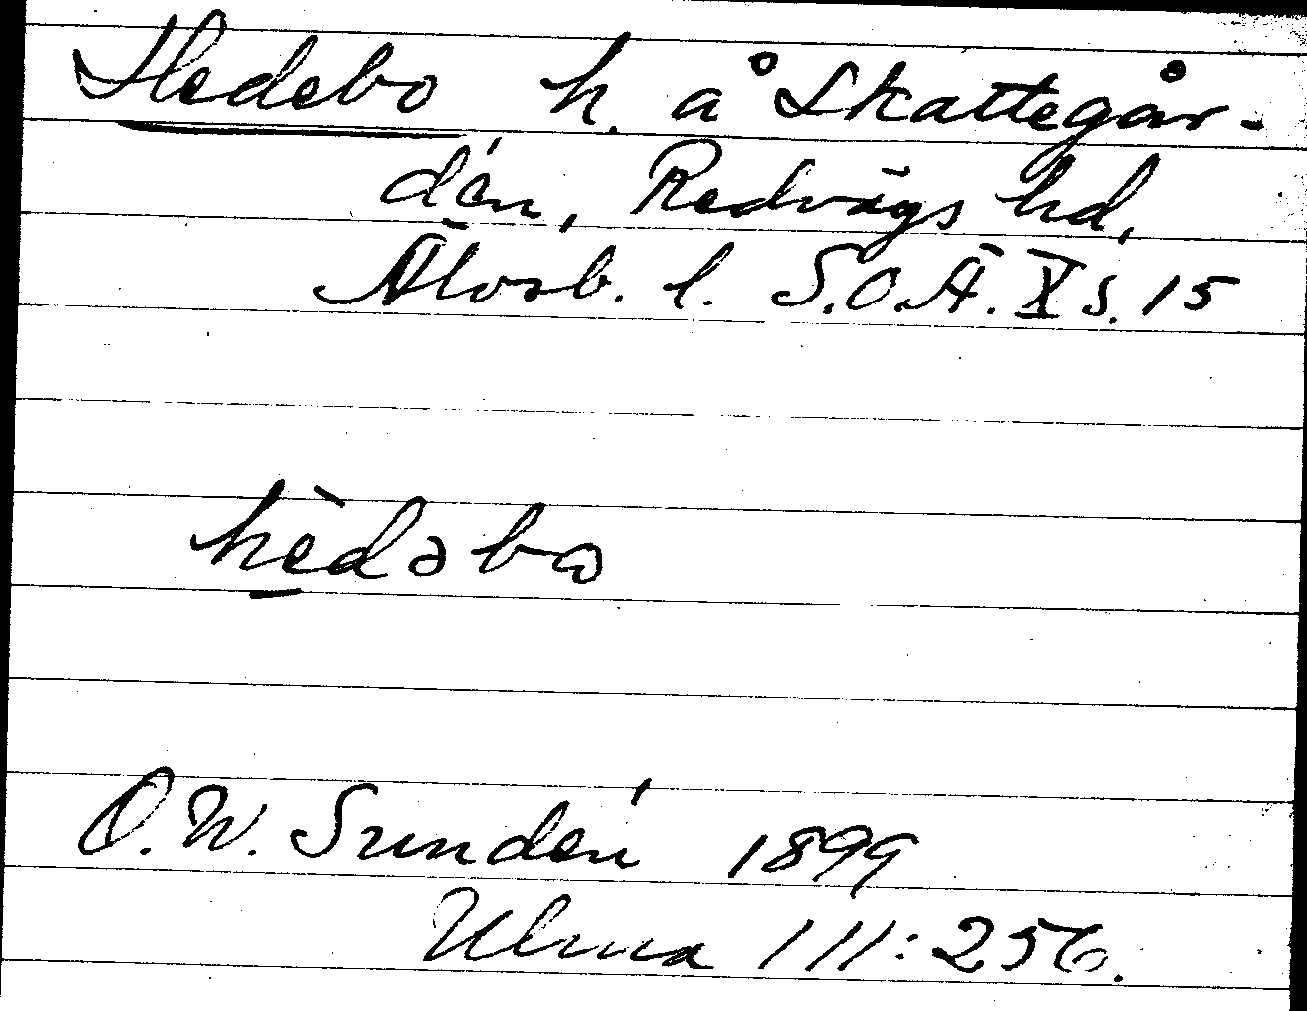 Hedebo h. å Skattegår-
den, Redvägs hd,
Älvsb. l. S.O.Ä. X s. 15
hèdəbω
O. W. Sundén 1899
Ulma 111:256.